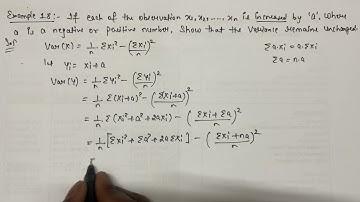 Example 18:- If each of the observation x₁, x₂, ...., xₙ is increased by 'a', where
a is a negative or positive number, Show that the Variance remains unchanged.
Sol Var (x) = 1/n Σxi² - (Σxi/n)² Σa·xi = a·Σxi
Let yi = xi + a Σa = n·a
Var (y) = 1/n Σyi² - (Σyi/n)²
= 1/n Σ(xi+a)² - (Σ(xi+a)/n)²
= 1/n Σ(xi² + a² + 2axi) - (Σxi + Σa/n)²
= 1/n [Σxi² + Σa² + 2aΣxi] - (Σxi + na/n)²